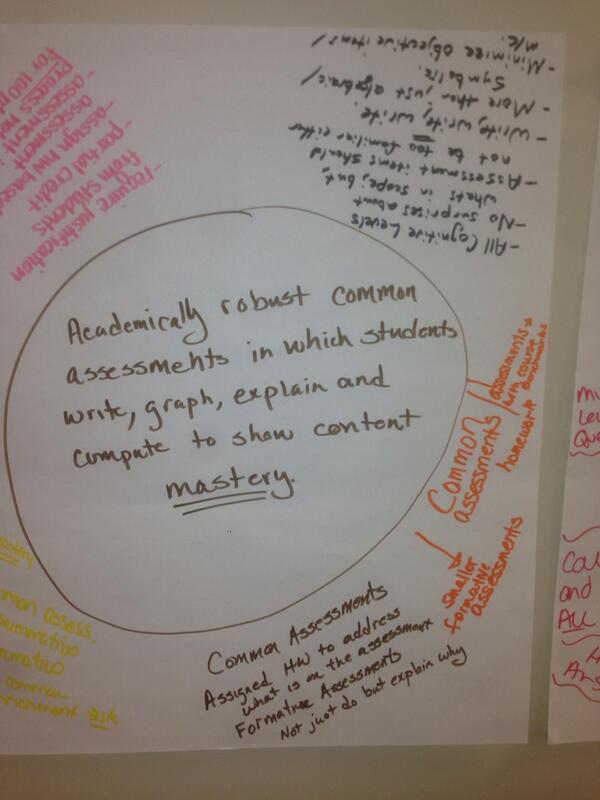 Academically robust common
assessments in which students
write, graph, explain and
compute to show content
mastery.
-All Cognitive Levels
-No surprises about
what's in scope; but,
-Assessment items should
not be too familiar either
-Write, write, write
-More than just algebraic/
symbolic
-Minimize objective items/
m/c.
-require justification
from students
-partial credit
-assign HW based
assessment
-assessment
process not
Common
assessments
assessments +
with course
homework
smaller
formative
assessments
Common Assessments
Assigned HW to address
what is on the assessment
Formative Assessments
Not just do but explain why
mastery
assess.
and
ALL